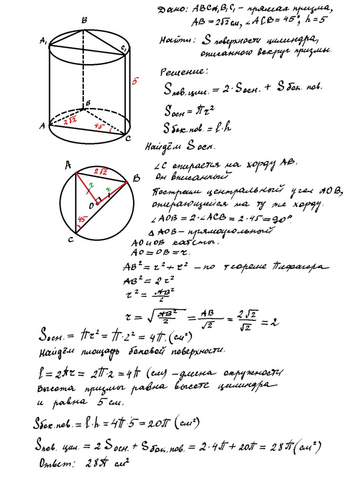 Дано: ABCA₁B₁C₁ - прямая призма,
AB = 2√2 см, ∠ACB = 45°, h = 5
Найти: S поверхности цилиндра,
описанного вокруг призмы.
Решение:
Sпов.цил. = 2·Sосн. + Sбок.пов.
Sосн = πr²
Sбок.пов = l·h
Найдём Sосн.
∠C опирается на хорду AB.
Он вписанный
Построим центральный угол AOB,
опирающийся на ту же хорду.
∠AOB = 2·∠ACB = 2·45 = 90°
△AOB - прямоугольный
AO и OB катеты.
AO = OB = r.
AB² = r² + r² - по теореме Пифагора
AB² = 2r²
r² = AB²/2
r = √AB²/2 = AB/√2 = 2√2/√2 = 2
Sосн. = πr² = π·2² = 4π (см²)
Найдём площадь боковой поверхности.
l = 2πr = 2π2 = 4π (см) - длина окружности
Высота призмы равна высоте цилиндра
и равна 5 см.
Sбок.пов = l·h = 4π·5 = 20π (см²)
Sпов. цил. = 2Sосн. + Sбок.пов. = 2·4π + 20π = 28π (см²)
Ответ: 28π см²
B
A₁
C₁
5
B
2√2
A
45
C
A
2√2
B
r
r
O
45
C